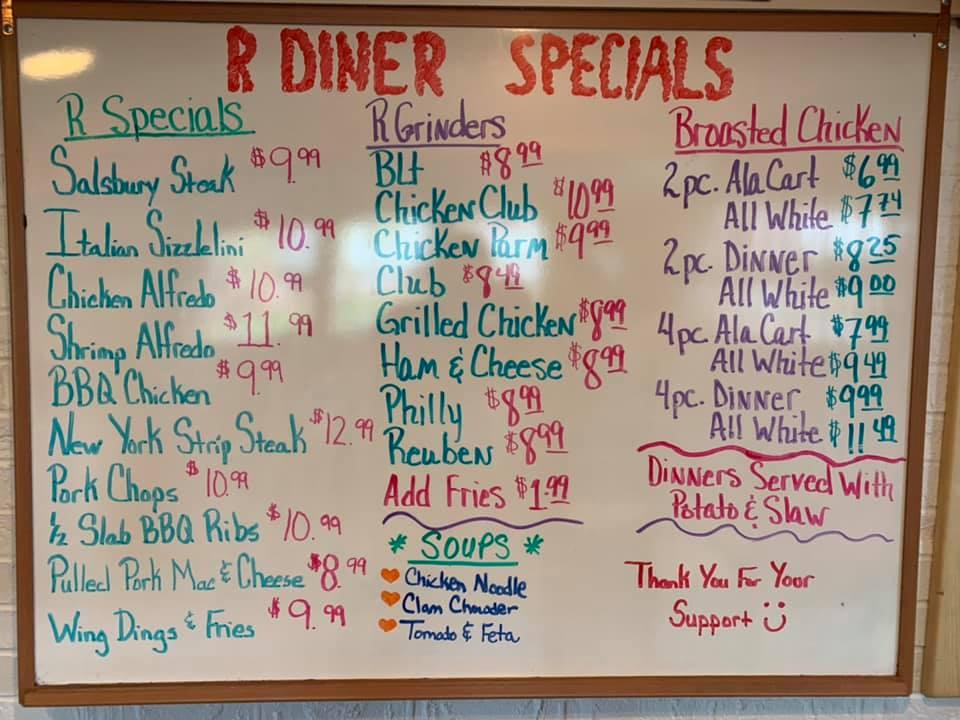 R DINER SPECIALS
R Specials
Salsbury Steak $9.99
Italian Sizzlelini $10.99
Chicken Alfredo $10.99
Shrimp Alfredo $11.99
BBQ Chicken $9.99
New York Strip Steak $12.99
Pork Chops $10.99
1/2 Slab BBQ Ribs $10.99
Pulled Pork Mac & Cheese $8.99
Wing Dings & Fries $9.99
R Grinders
BLt $8.99
Chicken Club $10.99
Chicken Parm $9.99
Club $8.49
Grilled Chicken $8.99
Ham & Cheese $8.99
Philly $8.99
Reuben $8.99
Add Fries $1.99
* Soups *
Chicken Noodle
Clam Chowder
Tomato & Feta
Broasted Chicken
2pc. Ala Cart $6.99
All White $7.74
2pc. Dinner $8.25
All White $9.00
4pc. Ala Cart $7.99
All White $9.49
4pc. Dinner $9.99
All White $11.49
Dinners Served With
Potato & Slaw
Thank You For Your
Support